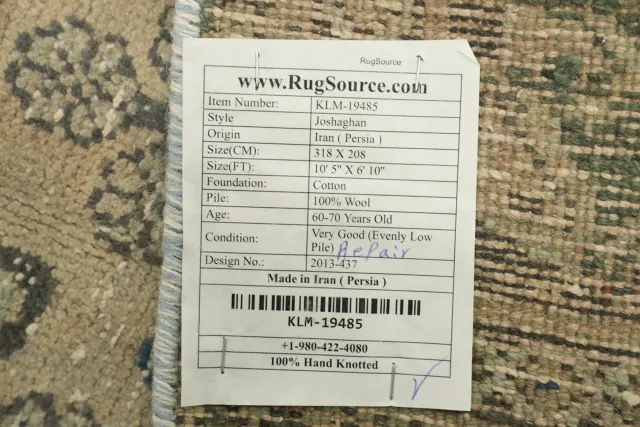 RugSource
www.RugSource.com
Item Number: KLM-19485
Style Joshaghan
Origin Iran ( Persia )
Size(CM): 318 X 208
Size(FT): 10' 5" X 6' 10"
Foundation: Cotton
Pile: 100% Wool
Age: 60-70 Years Old
Condition: Very Good (Evenly Low
Pile) Repair
Design No.: 2013-437
Made in Iran ( Persia )
KLM-19485
+1-980-422-4080
100% Hand Knotted